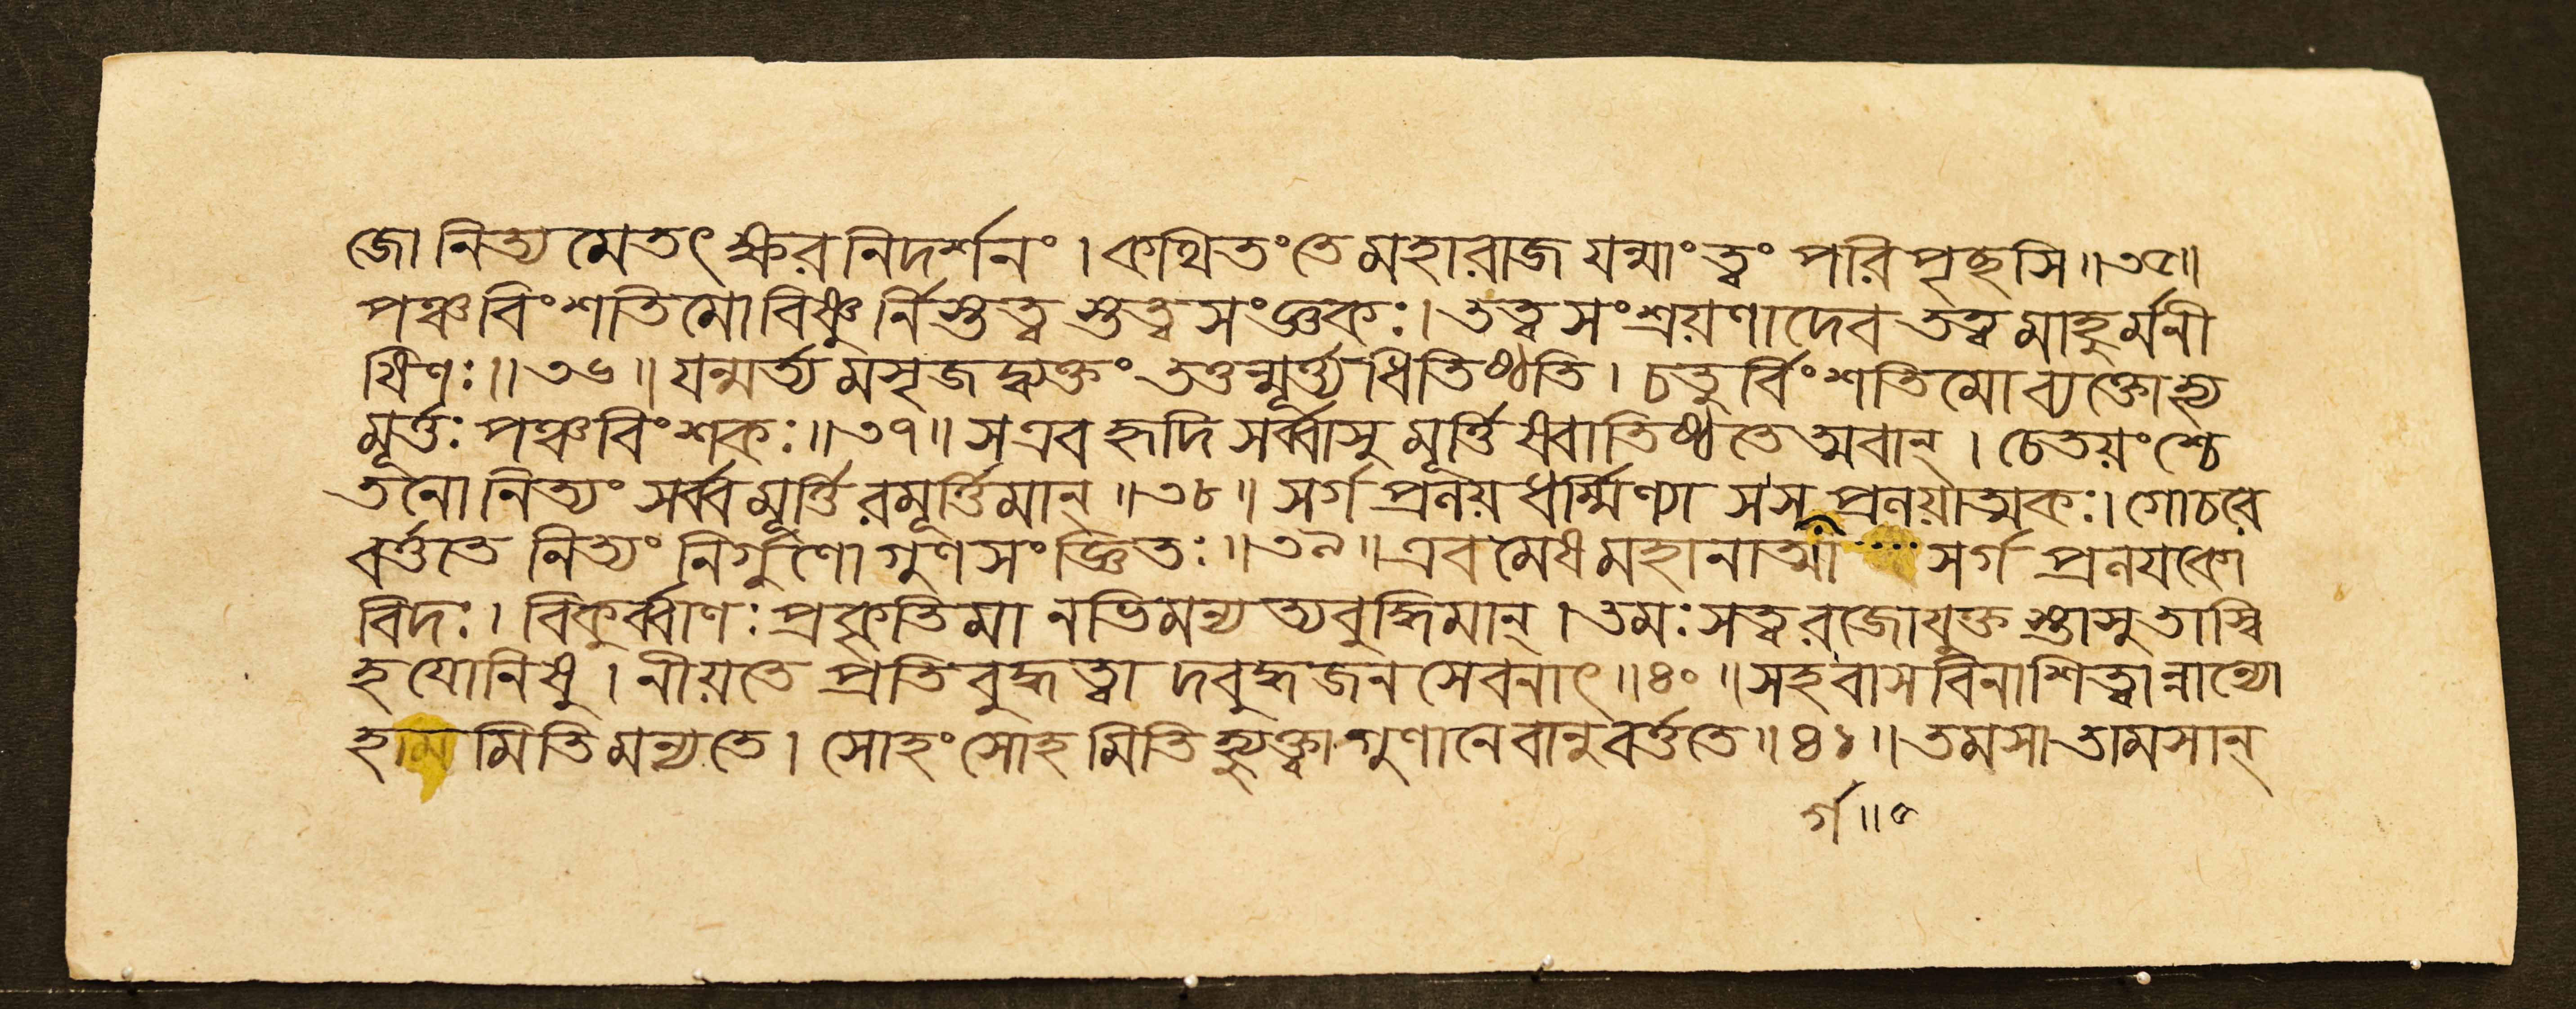 জো নিত্য মেতৎ ক্ষর নিদর্শনং । কথিতং তে মহারাজ যন্মাং ত্বং পরি পৃচ্ছসি ॥ ৩৫ ॥
পঞ্চ বিংশতিমো বিষ্ণু র্নিস্তত্ব স্তত্ব সংজ্ঞকঃ । তত্ব সংশ্রয়ণাদেব তত্ব মাহু র্মনী
ষিণঃ ॥ ৩৬ ॥ যন্মর্ত্য মসৃজদ্ব্যক্তং তত্তন্মূর্ত্ত্যধিতিষ্ঠতি । চতু র্বিংশতিমো ব্যক্তো হ্য
মূর্ত্তঃ পঞ্চ বিংশকঃ ॥ ৩৭ ॥ স এব হৃদি সর্ব্বাসু মূর্ত্তি ষ্বাতিষ্ঠতে ত্মবান্ । চেতয়ংশ্চে
তনো নিত্যং সর্ব্ব মূর্ত্তি রমূর্ত্তিমান্ ॥ ৩৮ ॥ সর্গ প্রলয় ধর্ম্মিণ্যা স স প্রলয়াত্মকঃ । গোচরে
বর্ত্ততে নিত্যং নির্গুণো গুণ সংজ্ঞিতঃ ॥ ৩৯ ॥ এব মেষ মহানাত্মা সর্গ প্রলয় কো
বিদঃ । বিকুর্ব্বাণঃ প্রকৃতিমা নভিমন্য ত্যবুদ্ধিমান্ । তমঃ সত্ব রজোযুক্ত স্তাসু তাস্বি
হ যোনিষু । লীয়তে প্রতিবুদ্ধত্বা দবুদ্ধ জন সেবনাৎ ॥ ৪০ ॥ সহবাস বিনাশিত্বান্নান্যো
হাম মিতি মন্যতে । সোহং সোহ মিতি হ্যুক্ত্বা গুণানেবানুবর্ত্ততে ॥ ৪১ ॥ তমসা তামসান্
র্গ ॥ ৫